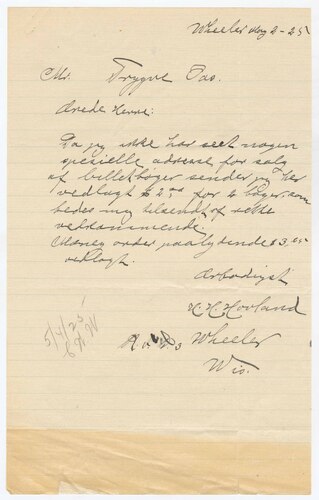 Wheeler May 2-25
Mr. Trygve Oas.
Ærede Herre:
Da jeg ikke har seet nogen
spesielle adresse for salg
af billetbøger sender jeg her
vedlagt $2.00 for 2 bøger, som
bedes mig tilsendt af rette
vedkommende.
Money order paalydende $3.00
vedlagt.
Ærbødigst
H. H. Hovland
Wheeler
Wis.
5/4/25